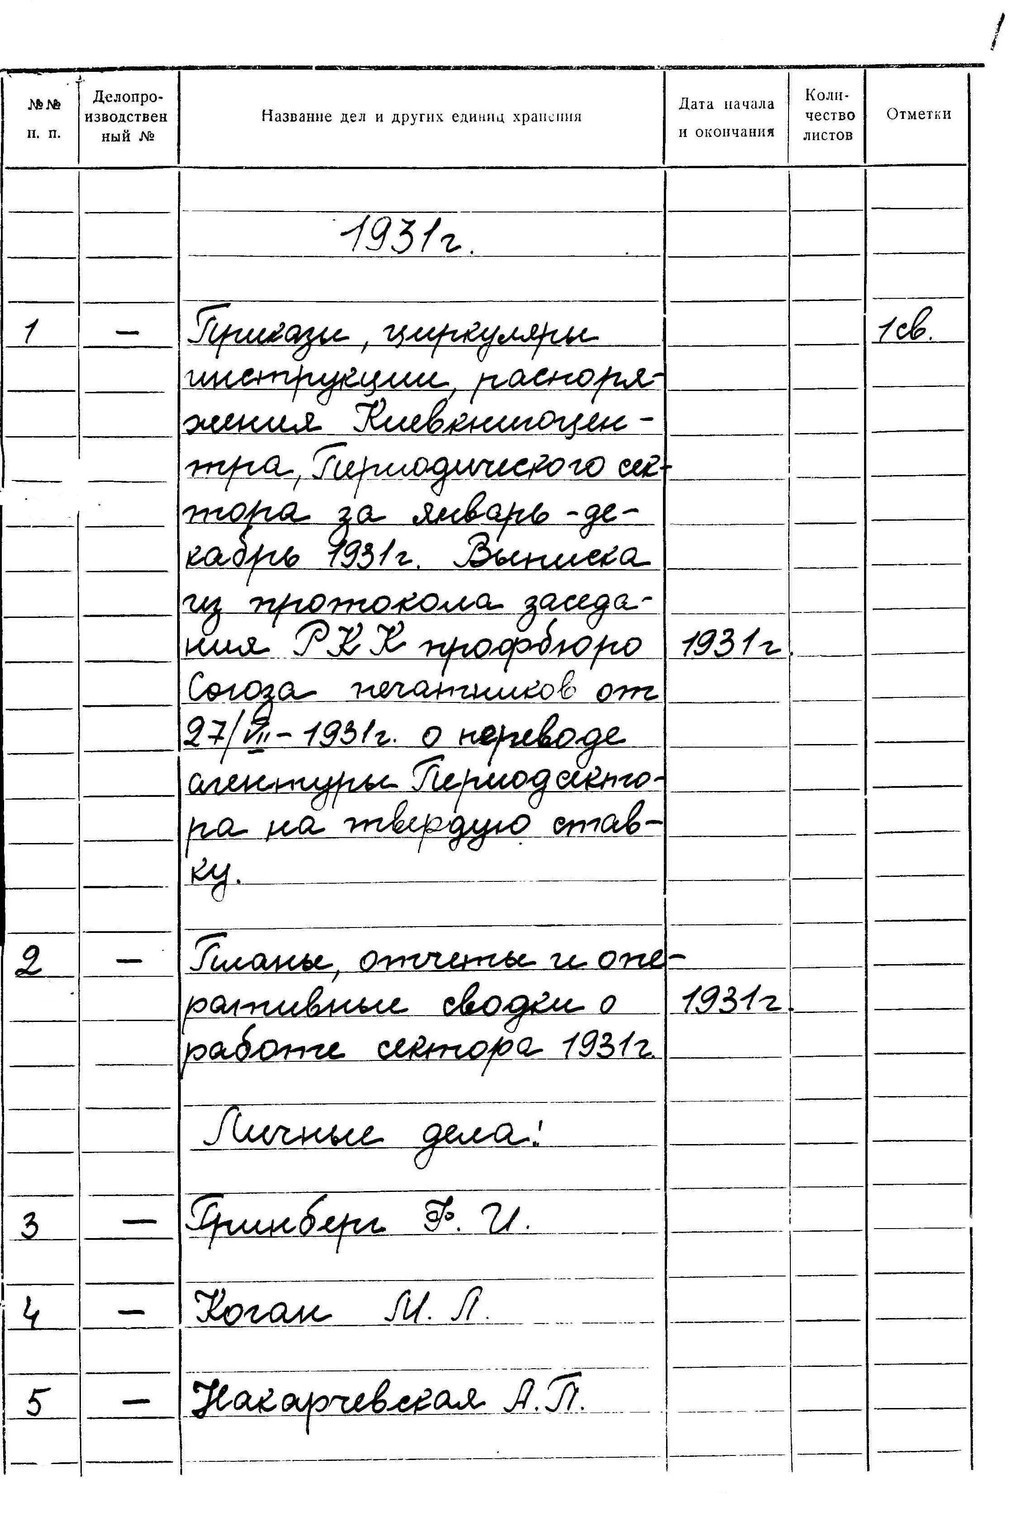 1
№№ п. п. Делопроизводствен ный № Название дел и других единиц хранения Дата начала и окончания Коли-чество листов Отметки
1931г.
1 – Приказы, циркуляры 1св.
инструкции, распоря-
жения Киевкнигоцен-
тра, Периодического сек-
тора за январь - де-
кабрь 1931г. Выписка
из протокола заседа-
ния РКК профбюро 1931г.
Союза печатников от
27/VII - 1931г. о переводе
агентуры Периодсекто-
ра на твердую став-
ку.
2 – Планы, отчеты и опе-
ративные сводки о 1931г.
работе сектора 1931г.
Личные дела:
3 – Гринберг Ф. И.
4 – Коган М. Л.
5 – Накарчевская А. П.